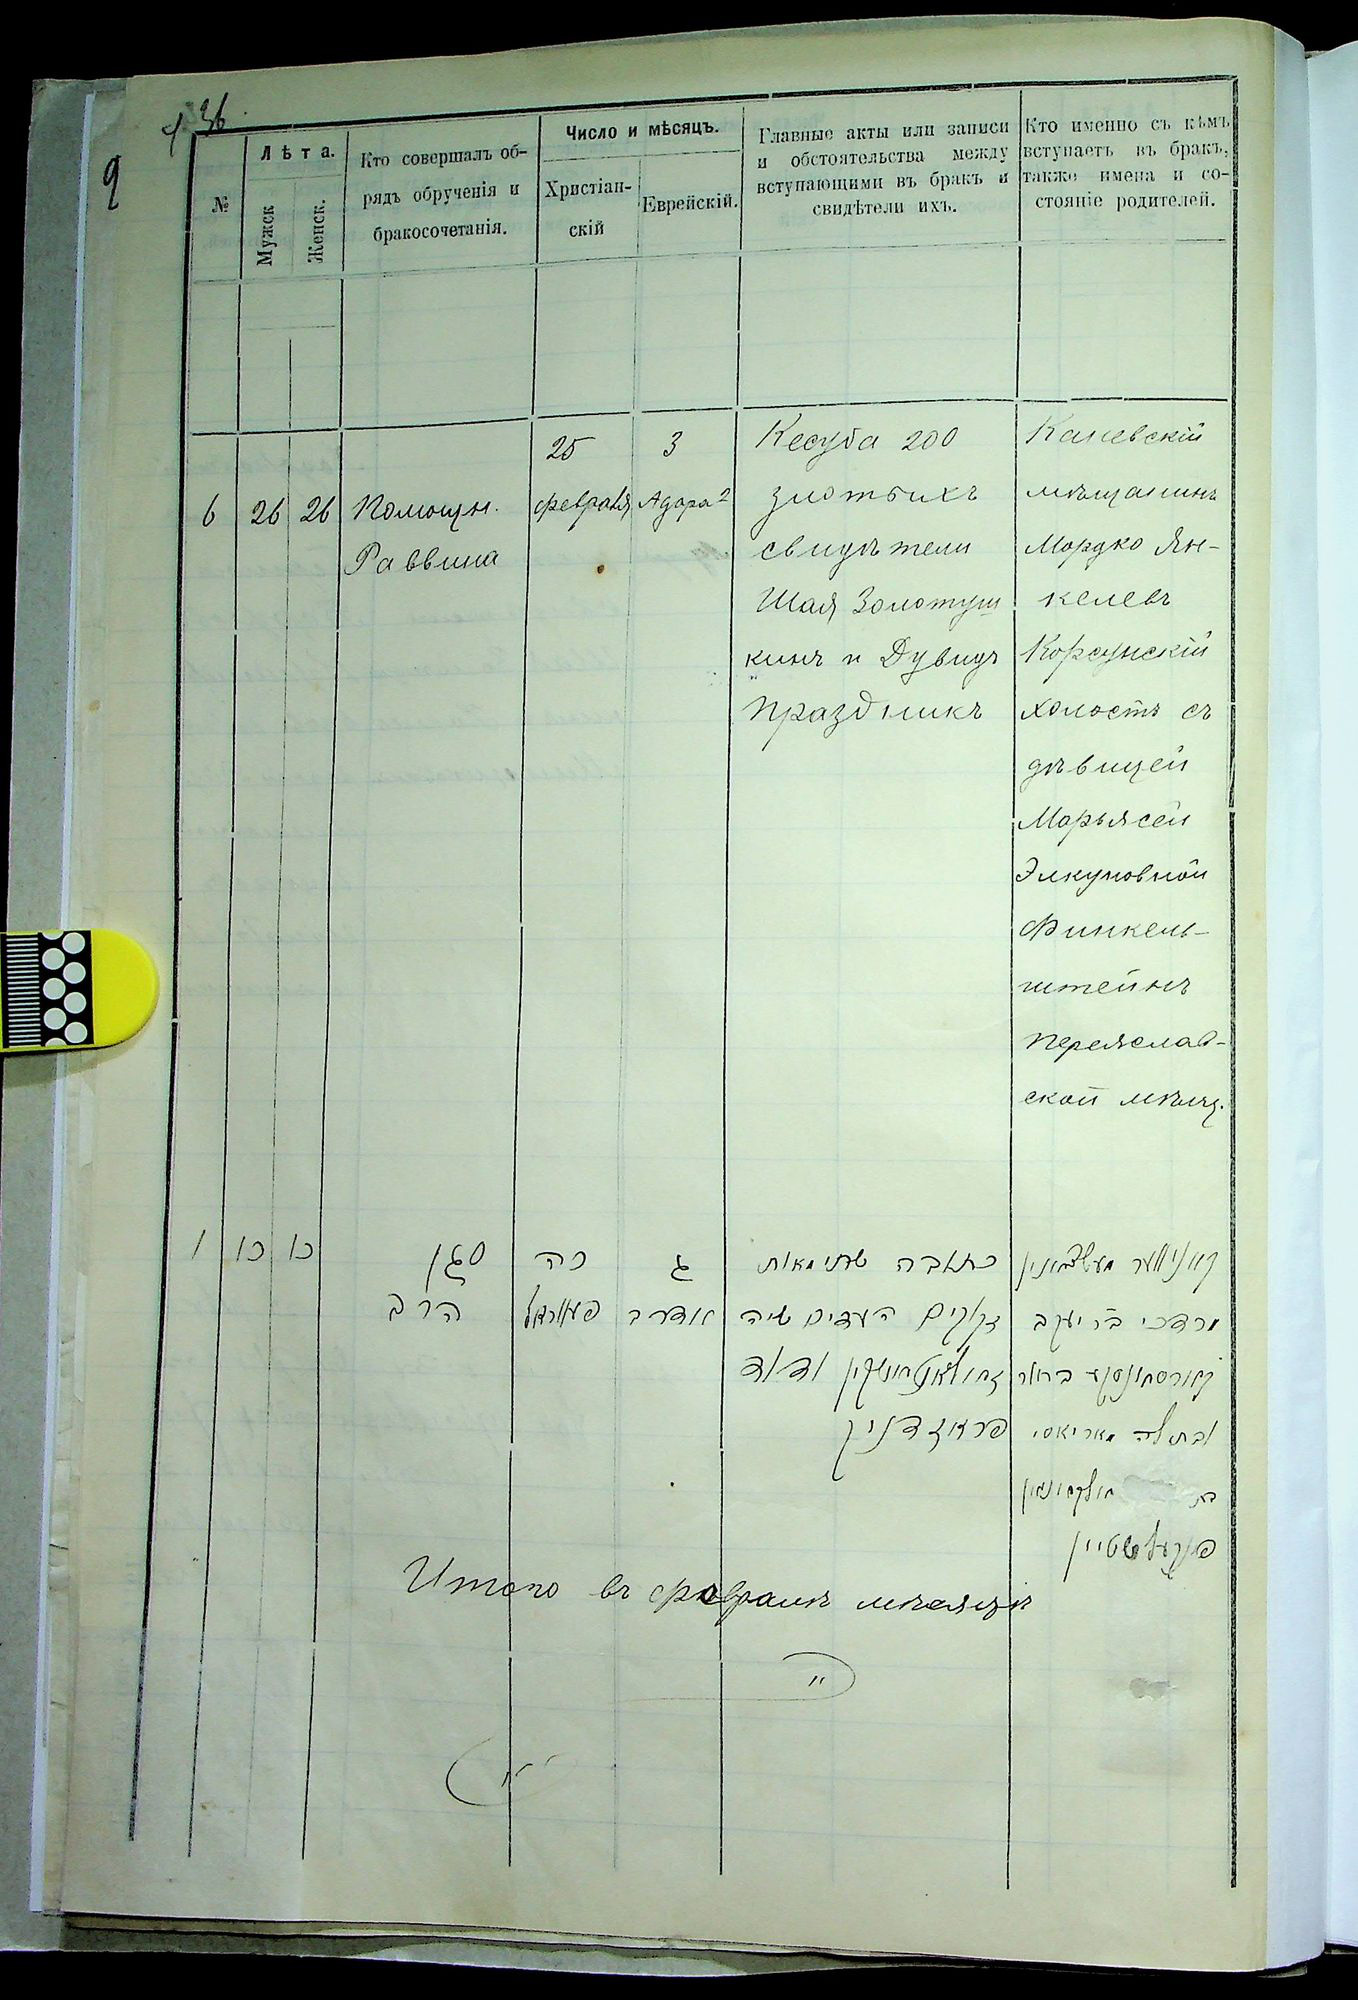 36
№
Лѣта.
Мужск
Женск.
Кто совершалъ об-
рядъ обрученія и
бракосочетанія.
Число и мѣсяцъ.
Христіан-
скій
Еврейскій.
Главные акты или записи
и обстоятельства между
вступающими въ бракъ и
свидѣтели ихъ.
Кто именно съ кѣмъ
вступаетъ въ бракъ,
также имена и со-
стояніе родителей.
6
26
26
Помощн.
Раввина
25
февраля
3
Адара 2
Кесуба 200
злотыхъ
свидѣтели
Шая Золотуш
кинъ и Дувидъ
Праздникъ
Каневскій
мѣщанинъ
Мордко Ян-
келевъ
Корсунскій
холостъ съ
дѣвицей
Марьясей
Элкуновной
Финкель-
штейнъ
Переяслав-
ской мѣщ.
ו
כו
כו
סגן
הרב
כה
פעווראל
ג
אדר ב
כתובה שתי מאות
זקוקים העדים שיה
זאלאטושקין ודוד
פראזדניק
קאניווער מעשצאנין
מרדכי בר יעקב
קורסונסקע בחור
ובתולה מאריאסי
בת
פינקעלשטיין
Итого въ февралѣ мѣсяцѣ